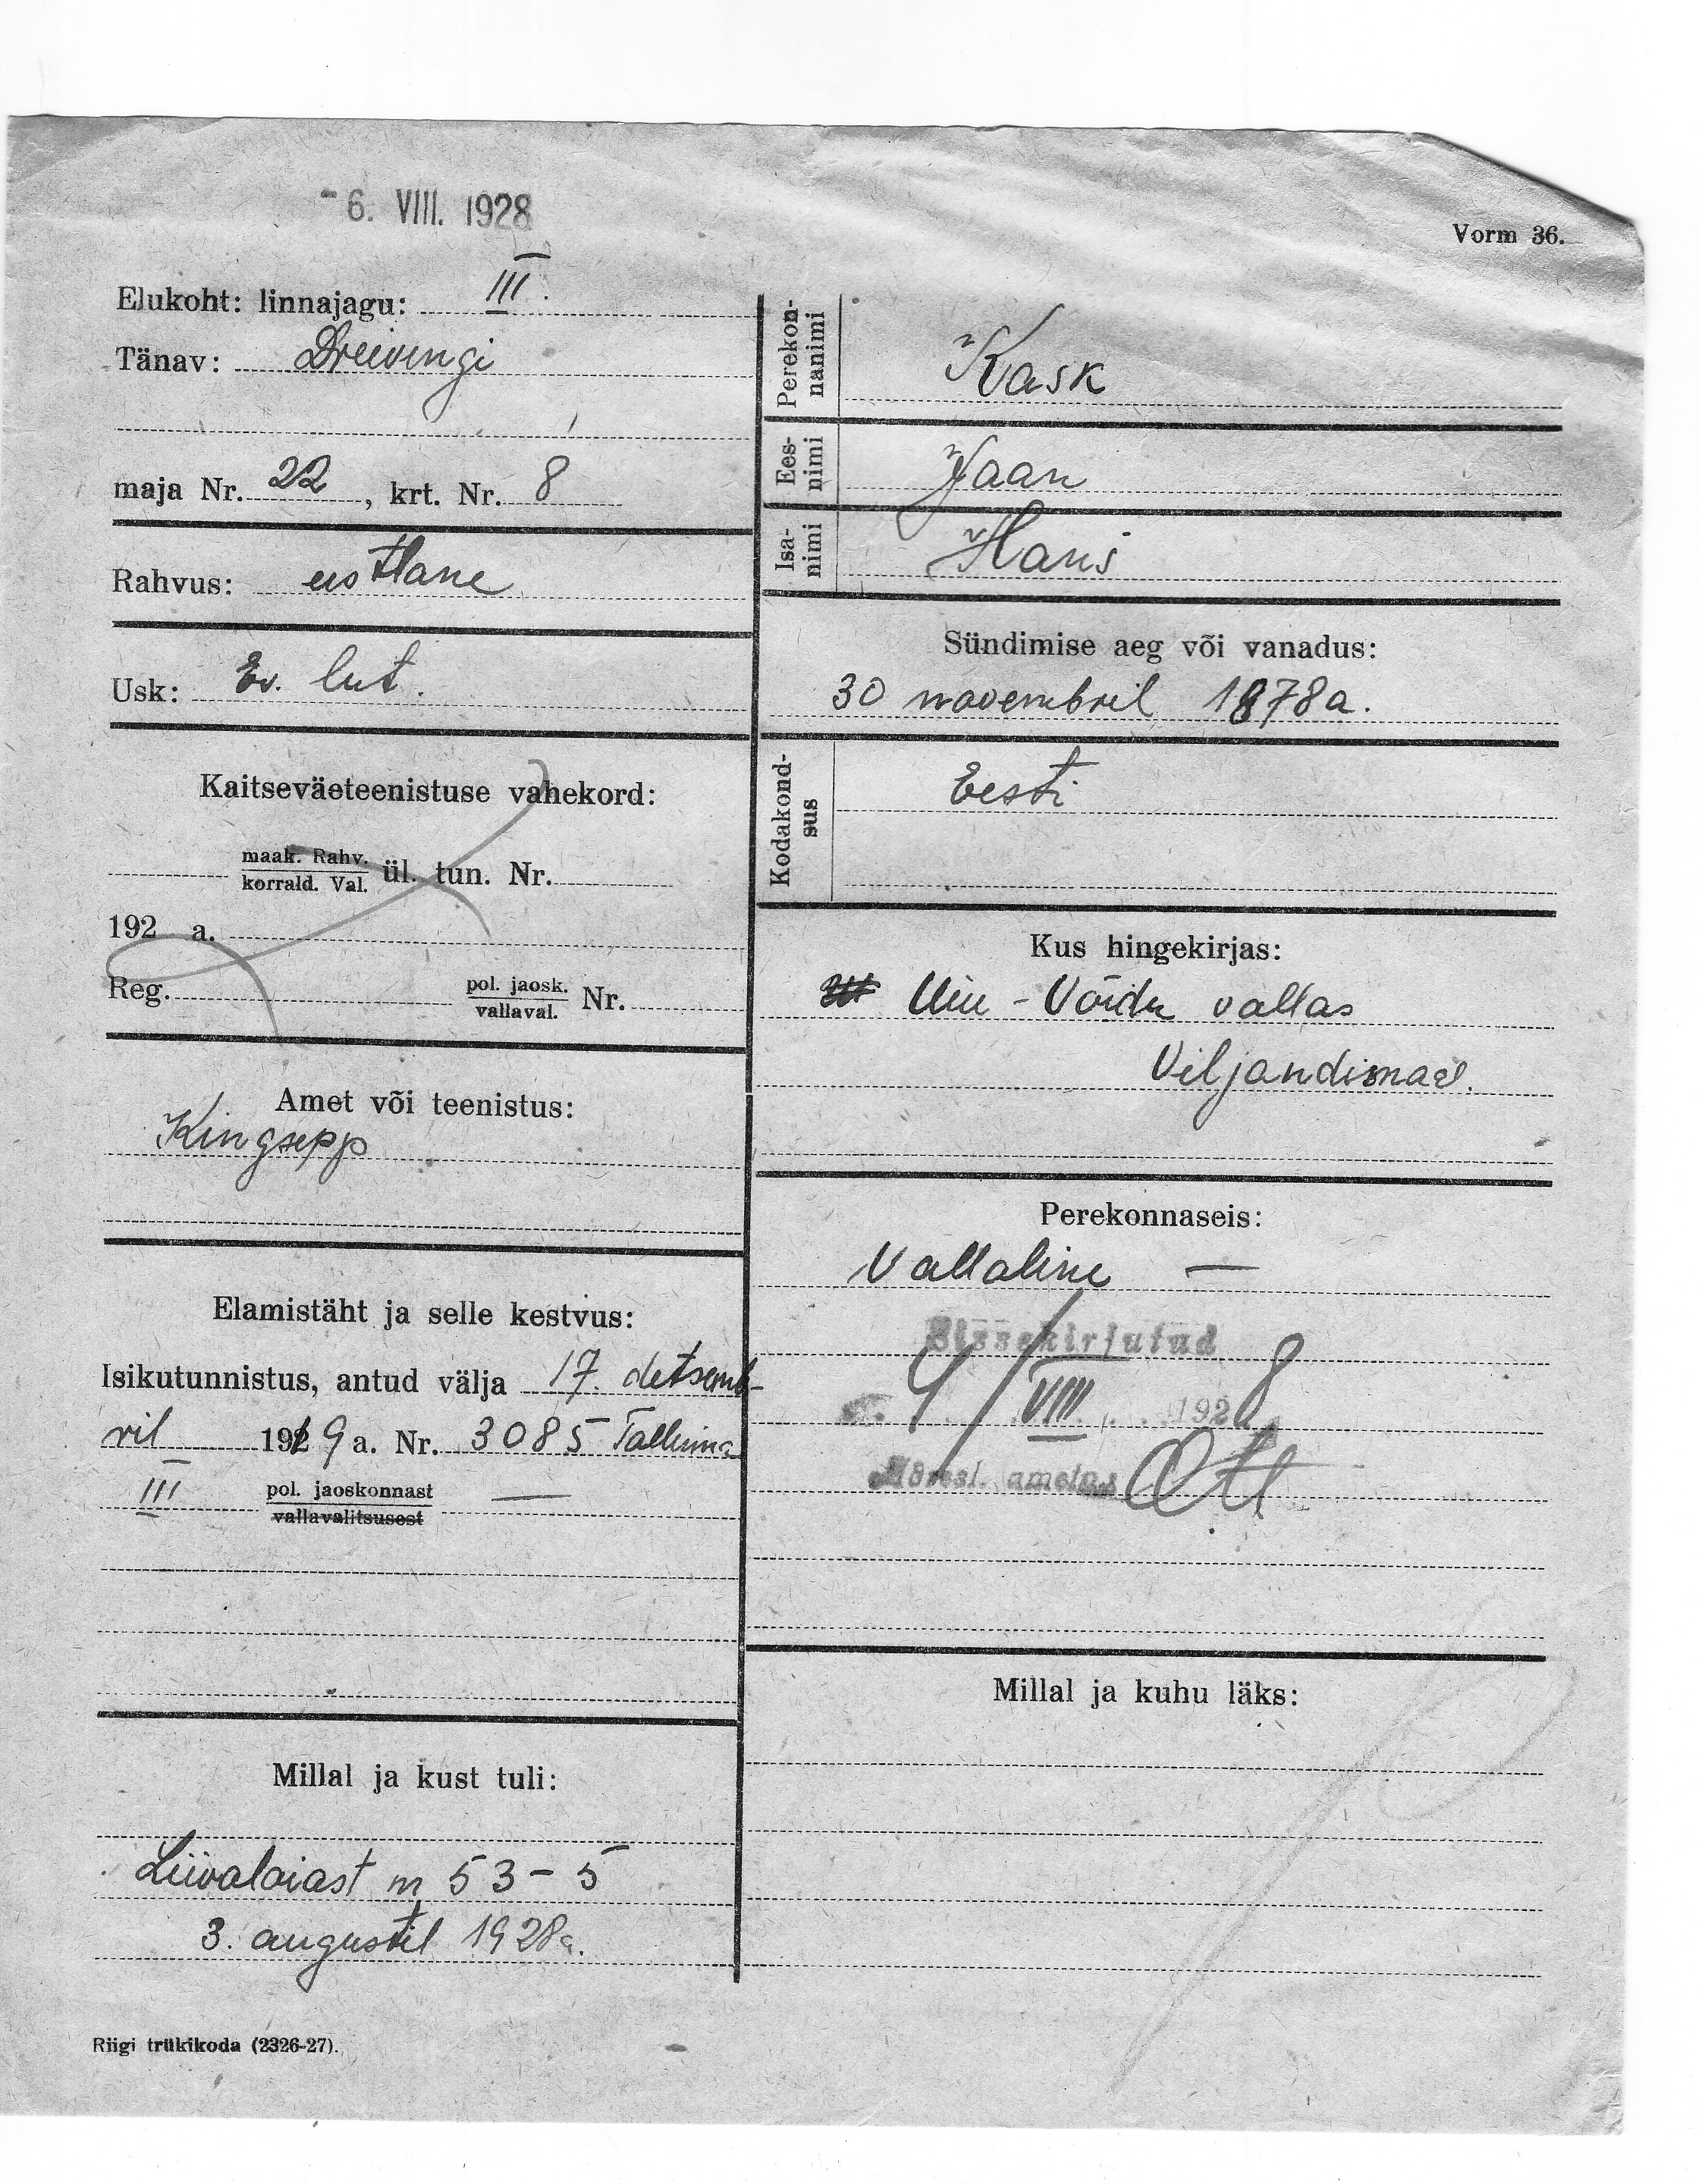 - 6. VIII. 1928
Vorm 36.
Elukoht: linnajagu: III.
Tänav: Dreivingi
maja Nr. 22, krt. Nr. 8
Rahvus: eestlane
Usk: Ev. lut.
Kaitseväeteenistuse vahekord:
maak. Rahv.
korrald. Val. ül. tun. Nr.
192 a.
Reg. pol. jaosk.
vallaval. Nr.
Amet või teenistus:
Kingsepp
Elamistäht ja selle kestvus:
Isikutunnistus, antud välja 17. detsemb-
ril 1919 a. Nr. 3085 Tallinna
III pol. jaoskonnast —
vallavalitsusest
Millal ja kust tuli:
Liivalaiast m 53-5
3. augustil 1928a.
Riigi trükikoda (2326-27).
Perekon-
nanimi
Kask
Ees-
nimi
Jaan
Isa-
nimi
Hans
Sündimise aeg või vanadus:
30 novembril 1878a.
Kodakond-
sus
Eesti
Kus hingekirjas:
Uue-Võidu vallas
Viljandimaal.
Perekonnaseis:
Vallaline —
Sissekirjutud
4/VIII 1928
Adressl. ametnik Ott
Millal ja kuhu läks: